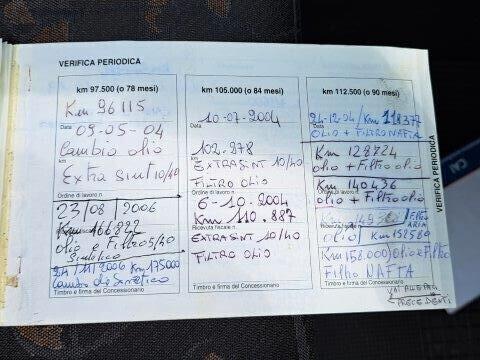 VERIFICA PERIODICA
km 97.500 (o 78 mesi)
Km 96115
Data 09-05-04
Cambio olio
km
Extra sint 10/40
Ordine di lavoro n.
23/08/2006
Km 166822
olio e Filtro 5/40
Sintetico
24/11/2006 Km 175000
Cambio olio Sintetico
Timbro e firma del Concessionario
km 105.000 (o 84 mesi)
10-07-2004
Data
102.878
km
EXTRASINT 10/40
FILTRO OLIO
Ordine di lavoro n.
6-10.2004
Km 110.887
Ricevuta fiscale n.
EXTRASINT 10/40
FILTRO OLIO
Timbro e firma del Concessionario
km 112.500 (o 90 mesi)
24-12-04/Km 118377
Data
OLIO + FILTRO NAFTA
Km 128724
olio + Filtro olio
Km 140436
Ordine di lavoro n.
olio + Filtro olio
Ricevuta fiscale n.
olio Km 152580
Km 158.000 olio e Filtro
Filtro NAFTA
Timbro e firma del Concessionario
PRECEDENTI
VERIFICA PERIODICA